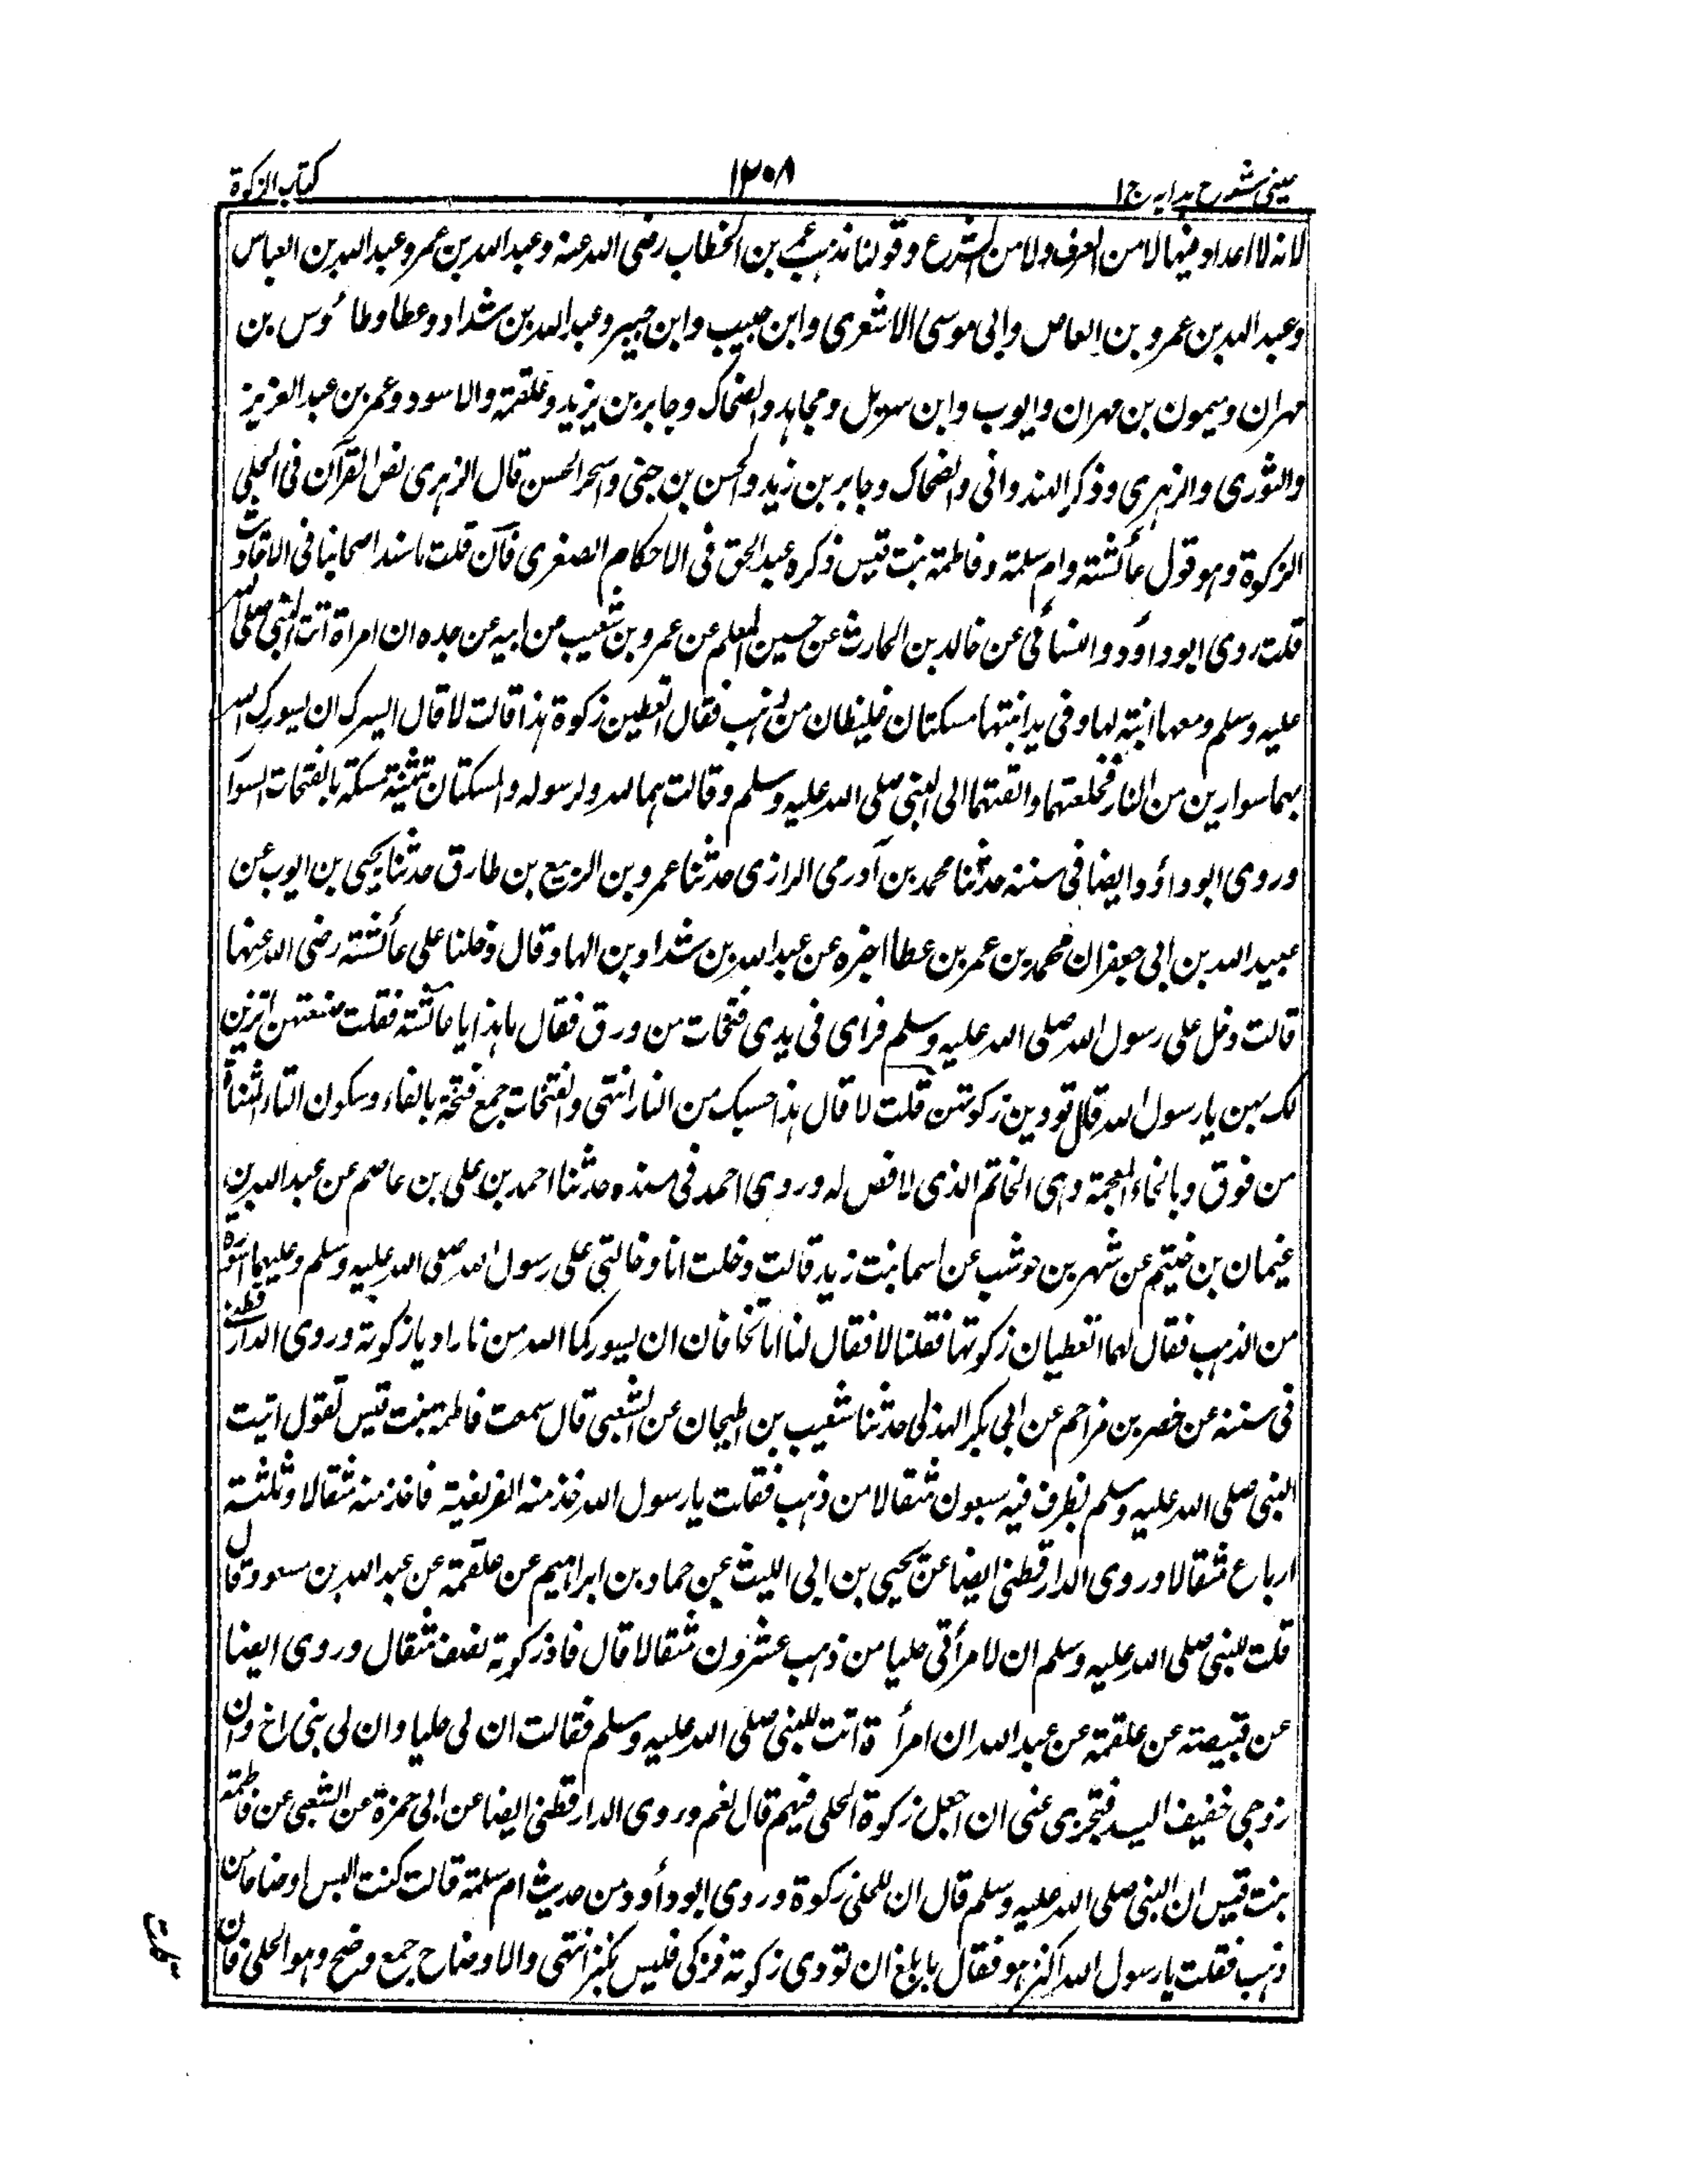 عینی شرح ہدایہ ج ۱
۱۲۰۸
کتاب الزکوة
لانه لا اعداد فيها لا من العرف ولا من الشرع وقولنا مذهب عمر بن الخطاب رضی الله عنه وعبد الله بن عمر وعبد الله بن العباس
وعبد الله بن عمرو بن العاص وابی موسی الاشعری وابن حبیب وابن جبیر وعبد الله بن شداد وعطا وطاؤس بن
مهران ومیمون بن مهران وایوب وابن سهریل ومجاهد والضحاک وجابر بن یزید وعلقمة والاسود وعمر بن عبد العزیز
والثوری والزهری وذکر الهندوانی والضحاک وجابر بن زید والحسن بن جنی واسحر الحسن قال الزهری نص القرآن فی الحلی
الزکوة وهو قول عائشة وام سلمة وفاطمة بنت قیس ذکره عبد الحق فی الاحکام الصغری فان قلت ما سند اصحابنا فی الاقاوت
قلت روی ابو داؤد والنسائی عن خالد بن الحارث عن حسین المعلم عن عمرو بن شعیب عن ابیه عن جده ان امراة اتت النبی صلی الله
علیه وسلم ومعها ابنة لها وفی ید ابنتها مسکتان غلیظان من ذهب فقال اتعطین زکوة هذا قالت لا قال ایسرک ان یسورک الله
بهما سوارین من النار فخلعتهما والقتهما الی النبی صلی الله علیه وسلم وقالت هما لله ولرسوله والمسکتان تثنیة مسکة بالفتحات السوا
وروی ابو داؤد ایضا فی سننه حدثنا محمد بن آدرمی الرازی حدثنا عمرو بن الربیع بن طارق حدثنا یحیی بن ایوب عن
عبید الله بن ابی جعفر ان محمد بن عمر بن عطا اخبره عن عبد الله بن شداد بن الهاد قال دخلنا علی عائشة رضی الله عنها
قالت دخل علی رسول الله صلی الله علیه وسلم فرای فی یدی فتخات من ورق فقال ما هذا یا عائشة فقلت صنعتهن اتزین
لک بهن یا رسول الله قال تودین زکوتهن قلت لا قال هذا حسبک من النار انتهی والفتخات جمع فتخة بالفاء وسکون التاء المثناة
من فوق وبالخاء المعجمة وهی الخاتم الذی لا فص له وروی احمد فی مسنده حدثنا احمد بن علی بن عاصم عن عبد الله بن
عیمان بن خیثم عن شهر بن حوشب عن اسما بنت زید قالت دخلت انا وخالتی علی رسول الله صلی الله علیه وسلم وعلیهما اسورة
من الذهب فقال لهما اتعطیان زکوتها فقلنا لا فقال لنا اما تخافان ان یسورکما الله من نار ادیا زکوته وروی الدارقطنی
فی سننه عن خصر بن مزاحم عن ابی بکر الهذلی حدثنا شعیب بن الحیحان عن الشعبی قال سمعت فاطمة بنت قیس تقول اتیت
النبی صلی الله علیه وسلم بطرف فیه سبعون مثقالا من ذهب فقلت یا رسول الله خذ منه الفریضة فاخذ منه مثقالا وثلثة
ارباع مثقالا وروی الدارقطنی ایضا عن یحیی بن ابی اللیث عن حماد بن ابراهیم عن علقمة عن عبد الله بن مسعود قال
قلت للنبی صلی الله علیه وسلم ان لامرأتی حلیا من ذهب عشرون مثقالا قال فاذ زکوته نصف مثقال وروی ایضا
عن قبیصة عن علقمة عن عبد الله ان امرأة اتت للنبی صلی الله علیه وسلم فقالت ان لی حلیا وان لی بنی اخ وان
زوجی خفیف الید فتجزی عنی ان اجعل زکوة الحلی فیهم قال نعم وروی الدارقطنی ایضا عن ابی حمزة عن الشعبی عن فاطمة
بنت قیس ان النبی صلی الله علیه وسلم قال ان للحلی زکوة وروی ابو داؤد من حدیث ام سلمة قالت کنت البس اوضاحا من
ذهب فقلت یا رسول الله اکنز هو فقال ما بلغ ان تودی زکوته فزکی فلیس بکنز انتهی والاوضاح جمع وضح وهو الحلی فان
قلت